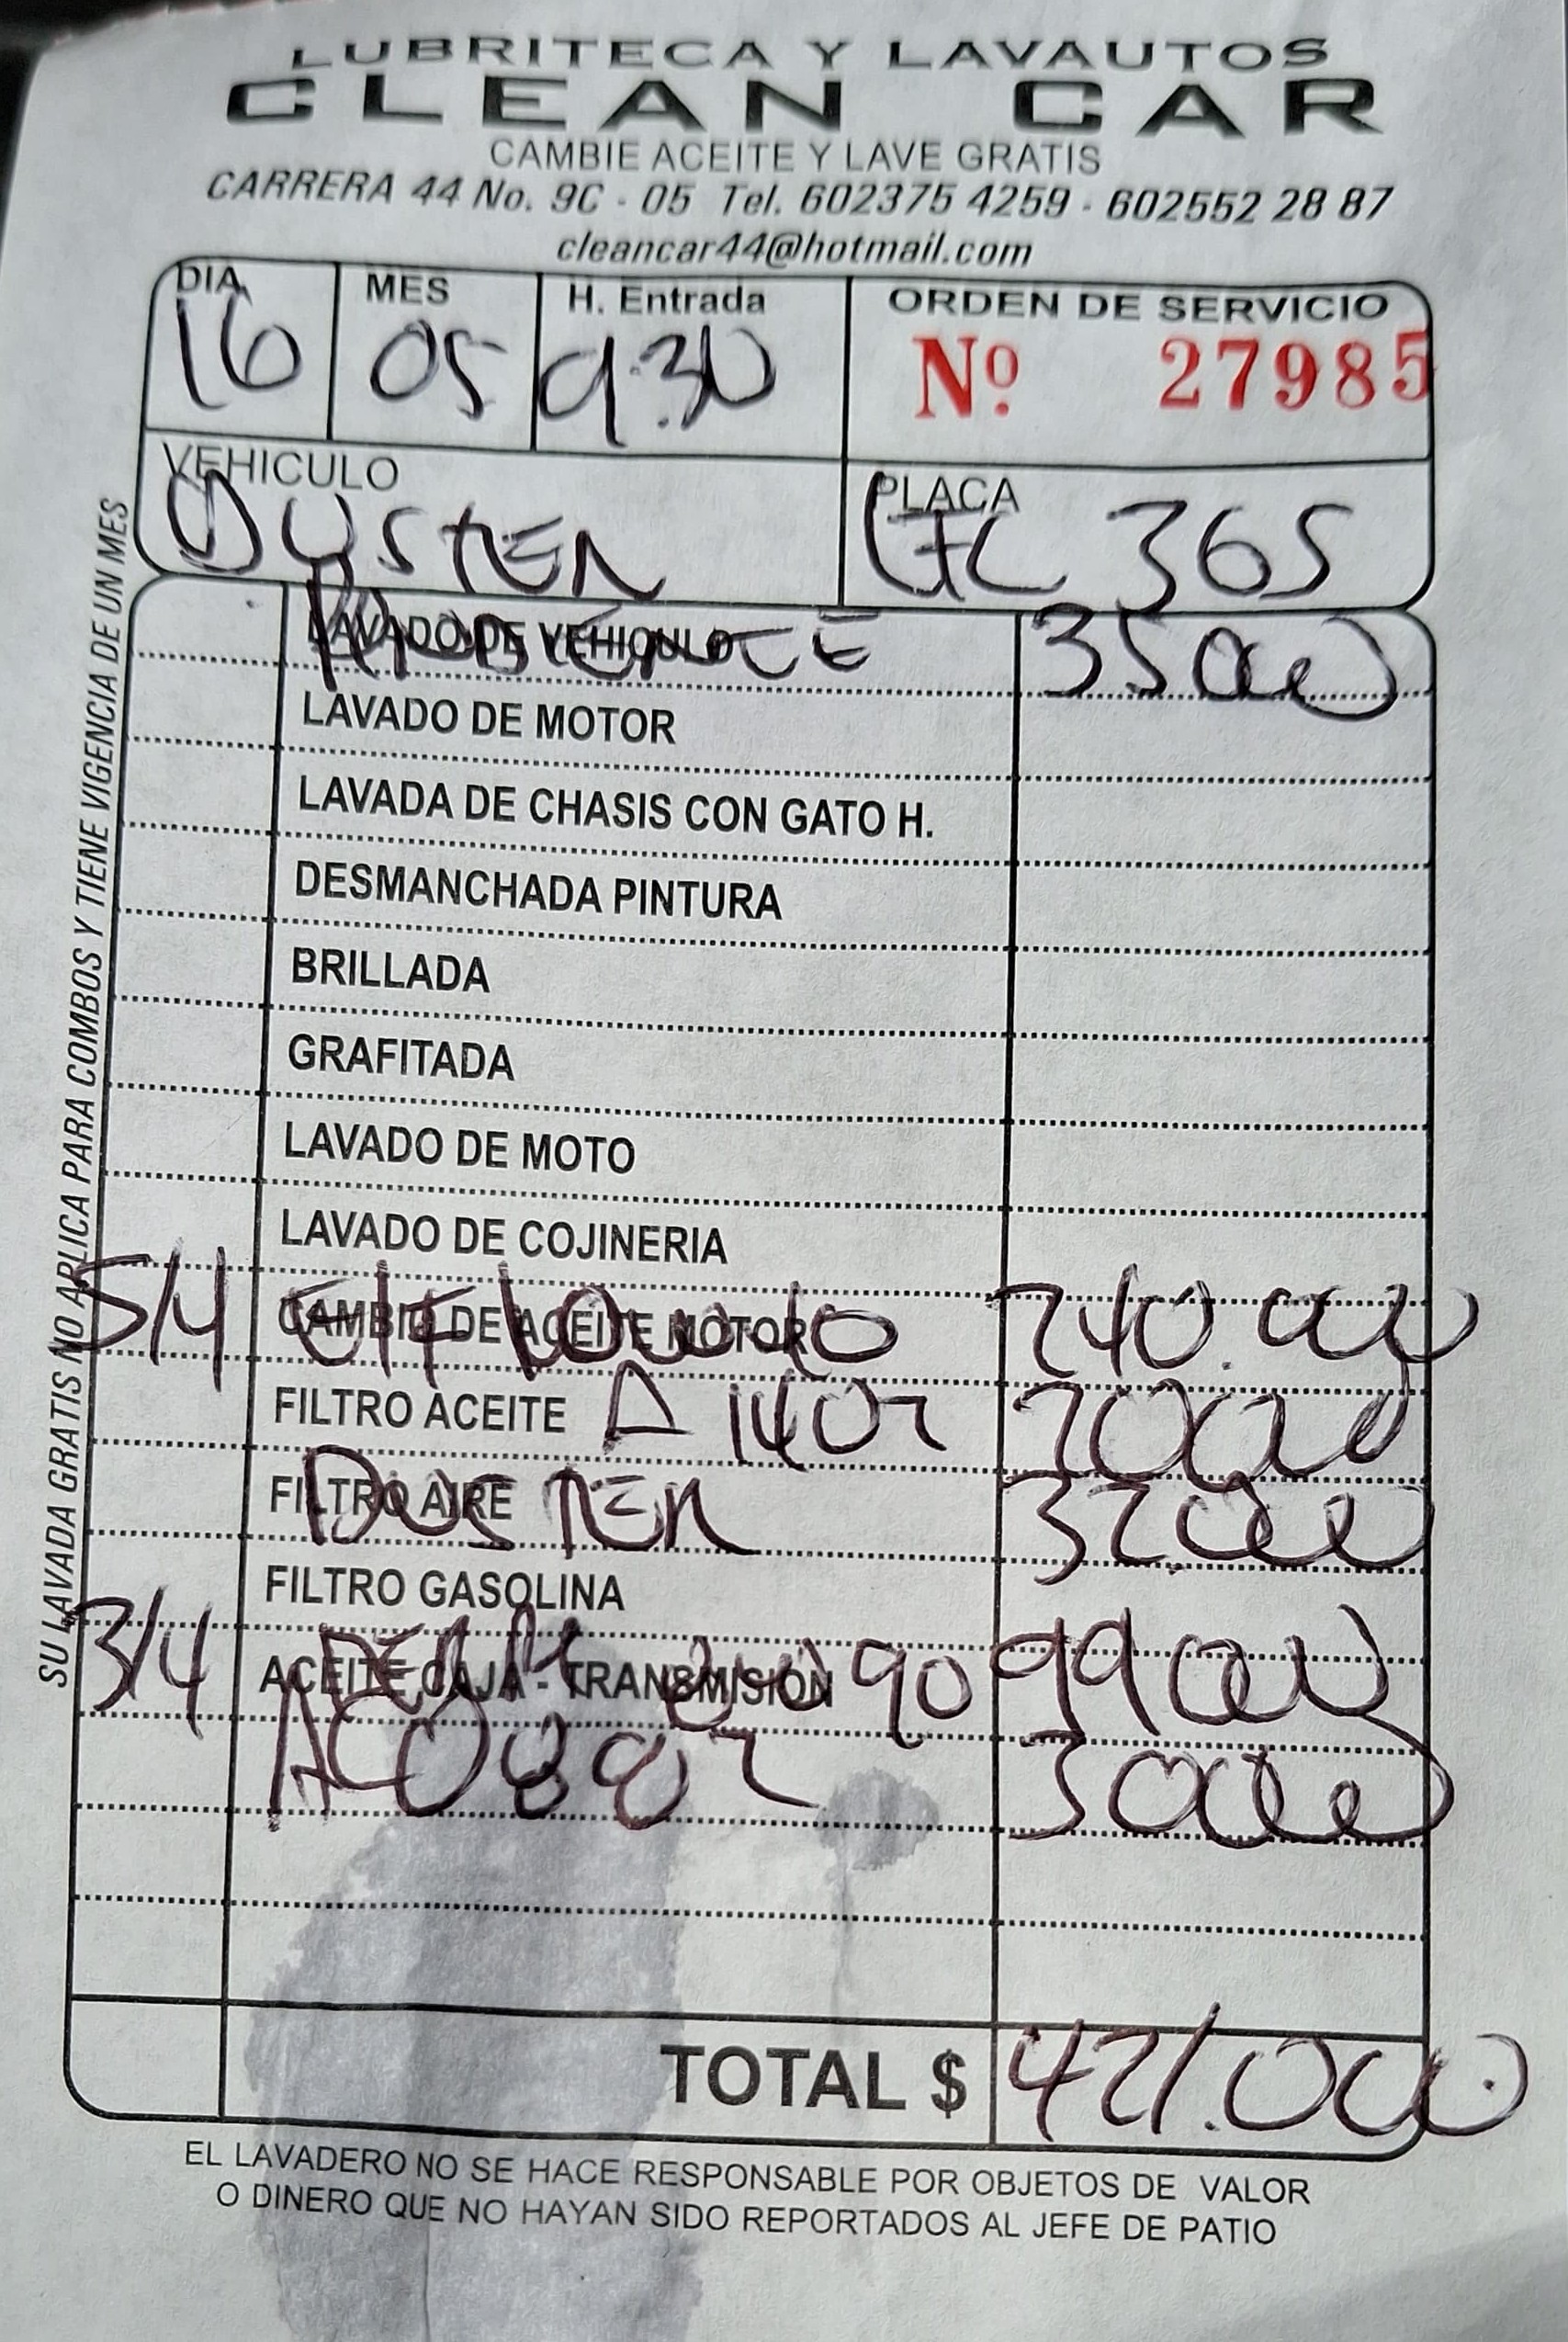 LUBRITECA Y LAVAUTOS
CLEAN CAR
CAMBIE ACEITE Y LAVE GRATIS
CARRERA 44 No. 9C - 05 Tel. 602375 4259 - 602552 28 87
cleancar44@hotmail.com
DIA MES H. Entrada ORDEN DE SERVICIO
16 05 9:30 Nº 27985
VEHICULO PLACA
DUSTER 365
LAVADO DE VEHICULO
LAVADO DE MOTOR
LAVADA DE CHASIS CON GATO H.
DESMANCHADA PINTURA
BRILLADA
GRAFITADA
LAVADO DE MOTO
LAVADO DE COJINERIA
5/4 CAMBIO DE ACEITE MOTOR 240.000
FILTRO ACEITE
FILTRO AIRE DUSTER
FILTRO GASOLINA
3/4 ACEITE CAJA - TRANSMISION 90
TOTAL $ 421.000
EL LAVADERO NO SE HACE RESPONSABLE POR OBJETOS DE VALOR
O DINERO QUE NO HAYAN SIDO REPORTADOS AL JEFE DE PATIO
SU LAVADA GRATIS NO APLICA PARA COMBOS Y TIENE VIGENCIA DE UN MES